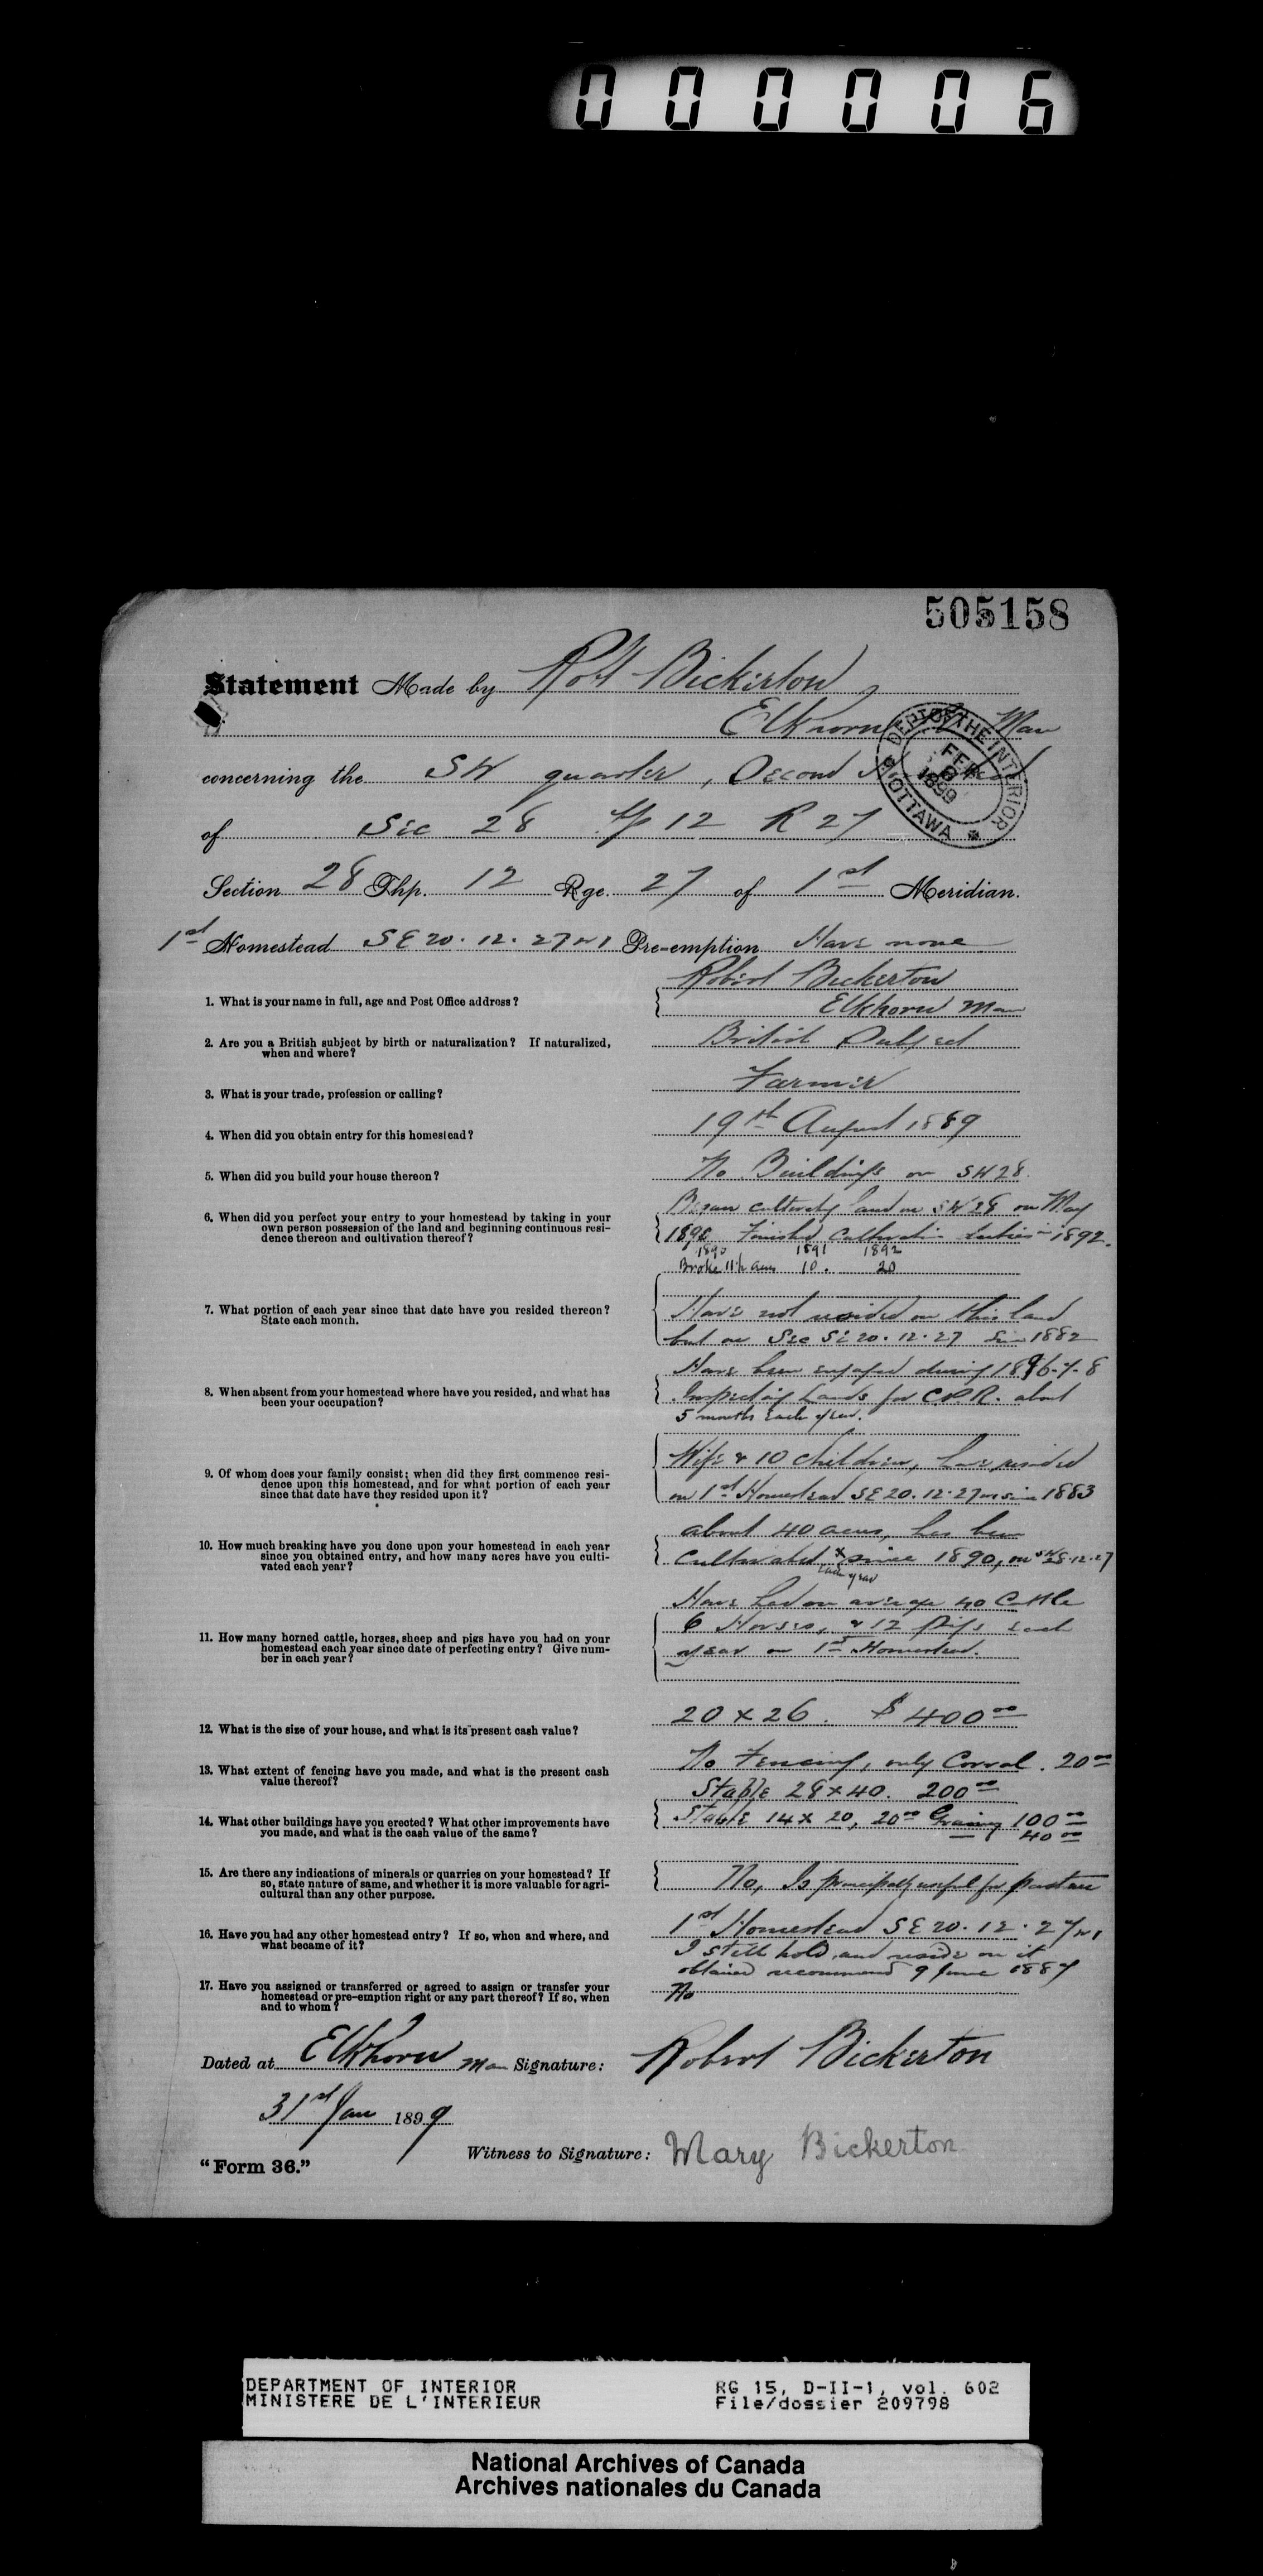 000006
505158
Statement Made by Robt Bickerton,
Elkhorn Man
concerning the SW quarter, Second
of Sec 28 Tp 12 R 27
DEPT OF THE INTERIOR
FEB 8 1899
OTTAWA
Section 28 Thp. 12 Rge. 27 of 1st Meridian.
1st Homestead SE 20. 12. 27 W1 Pre=emption Have none
1. What is your name in full, age and Post Office address? Robert Bickerton
Elkhorn Man
2. Are you a British subject by birth or naturalization? If naturalized, British Subject
when and where?
3. What is your trade, profession or calling? Farmer
4. When did you obtain entry for this homestead? 19th August 1889
5. When did you build your house thereon? No Buildings on SW 28.
6. When did you perfect your entry to your homestead by taking in your Began cultivatg land on SW 28 on May
own person possession of the land and beginning continuous resi- 1890 Finished Cultivation duties in 1892.
dence thereon and cultivation thereof? 1890 1891 1892
Broke 11½ acres 10. 20
7. What portion of each year since that date have you resided thereon? Have not resided on this land
State each month. but on Sec SE 20. 12. 27 Since 1882
Have been engaged during 1896-7-8
8. When absent from your homestead where have you resided, and what has Inspecting Lands for C.P.R. about
been your occupation? 5 months each year.
Wife & 10 children, have resided
9. Of whom does your family consist; when did they first commence resi-
dence upon this homestead, and for what portion of each year
since that date have they resided upon it? on 1st Homestead SE 20. 12. 27 W1 since 1883
about 40 acres, has been
10. How much breaking have you done upon your homestead in each year
since you obtained entry, and how many acres have you culti- Cultivated x since 1890, on SW 28.12.27
vated each year? each year
Have had on average 40 Cattle
11. How many horned cattle, horses, sheep and pigs have you had on your 6 Horses, & 12 Pigs each
homestead each year since date of perfecting entry? Give num- year on 1st Homestead.
ber in each year?
12. What is the size of your house, and what is its present cash value? 20 x 26. $400.00
13. What extent of fencing have you made, and what is the present cash No Fencing, only Corral. 20.00
value thereof?
Stable 28 x 40. 200.00
14. What other buildings have you erected? What other improvements have Stable 14 x 20, 20.00 Granary 100.00
you made, and what is the cash value of the same? 40.00
15. Are there any indications of minerals or quarries on your homestead? If
so, state nature of same, and whether it is more valuable for agri- No, Is principally useful for pasture
cultural than any other purpose.
16. Have you had any other homestead entry? If so, when and where, and 1st Homestead SE 20. 12. 27 W1
what became of it? I still hold and reside on it
obtained recommend 9 June 1887
17. Have you assigned or transferred or agreed to assign or transfer your No
homestead or pre-emption right or any part thereof? If so, when
and to whom?
Dated at Elkhorn Man Signature: Robert Bickerton
31st Jan 1899
Witness to Signature: Mary Bickerton
"Form 36."
DEPARTMENT OF INTERIOR RG 15, D-II-1, vol. 602
MINISTERE DE L'INTERIEUR File/dossier 209798
National Archives of Canada
Archives nationales du Canada